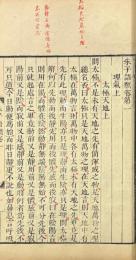 朱子語類卷第一
理氣上
太極天地上
問太極不是未有天地之先有箇渾成之物是天地萬物之
理總名否曰太極只是天地萬物之理在天地言則天地中
有太極在萬物言則萬物中各有太極未有天地之先畢竟是
先有此理動而生陽亦只是理靜而生陰亦只是理問太極
解何以先動而後靜先用而後體先感而後寂曰在陰陽言
則用在陽而體在陰然動靜無端陰陽無始不可分先後今
只就起處言之畢竟動前又是靜用前又是體感前又是寂
陽前又是陰而寂前又是感靜前又是動將何者為先後不
可只道今日動便為始而昨日靜更不說也如鼻息言呼吸